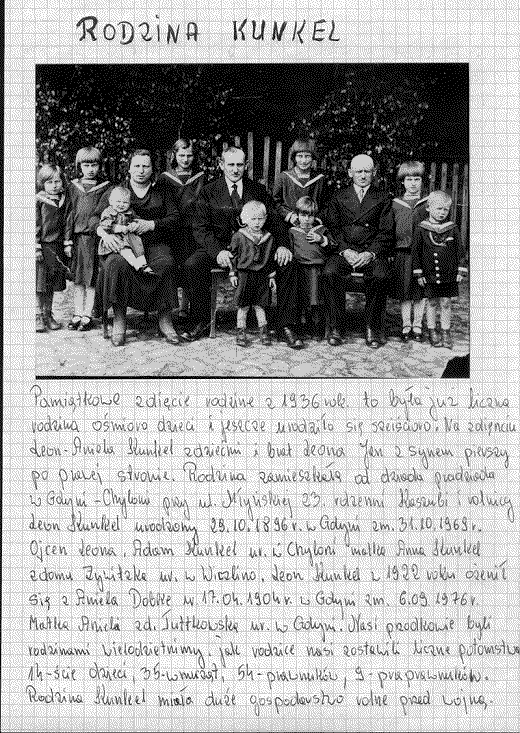 RODZINA KUNKEL
Pamiątkowe zdięcie rodzine z 1936 rok. to była już liczna
rodzina ośmioro dzieci i jeszcze urodziło się sześcioro. Na zdięciu
Leon-Aniela Kunkel zdziećmi i brat Leona Jan z synem pierwszy
po prawej stronie. Rodzina zamieszkała od dziada pradziada
w Gdyni-Chyloni przy ul. Młyńskiej 23. rdzenni Kaszubi i rolnicy
Leon Kunkel urodzony 29.10.1896r. w Gdyni zm. 31.10.1969r.
Ojcen Leona, Adam Kunkel ur. w Chyloni matka Anna Kunkel
zdomu Żywitzka ur. w Wiczlino. Leon Kunkel w 1922 roku ożenił
się z Aniela Dobke ur. 17.04.1904r. w Gdyni zm. 6.09.1976r.
Matka Anieli zd. Tuttkowska ur. w Gdyni. Nasi przodkowie byli
rodzinami wielodzietnymi, jak rodzice nasi zostawili liczne potomstwo
14-ście dzieci, 35-wnucząt, 54-prawnuków, 9-praprawnuków.
Rodzina Kunkel miała duże gospodarstwo rolne przed wojną.